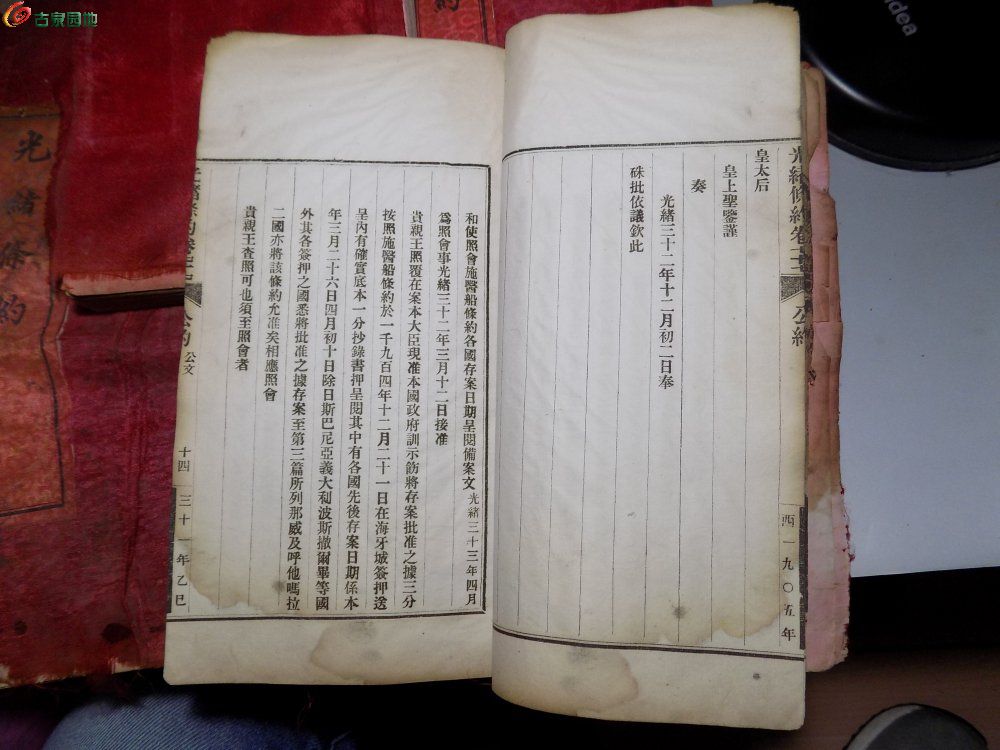 古泉园地
idea
光緒條約
皇太后
皇上聖鑒謹
奏
光緒三十二年十二月初二日奉
硃批依議欽此
公約
西一九〇五年
和使照會施醫船條約各國存案日期呈閱備案文 光緒三十三年四月
爲照會事光緒三十二年三月十二日接准
貴親王照覆在案本大臣現准本國政府訓示飭將存案批准之據三分
按照施醫船條約於一千九百四年十二月二十一日在海牙城簽押送
呈內有確實底本一分抄錄書押呈閱其中有各國先後存案日期係本
年三月二十六日四月初十日除日斯巴尼亞義大利波斯撒爾畢等國
外其各簽押之國悉將批准之據存案至第三篇所列那威及呼他嗎拉
二國亦將該條約允准矣相應照會
貴親王查照可也須至照會者
公約 公文
十四 三十一年乙巳